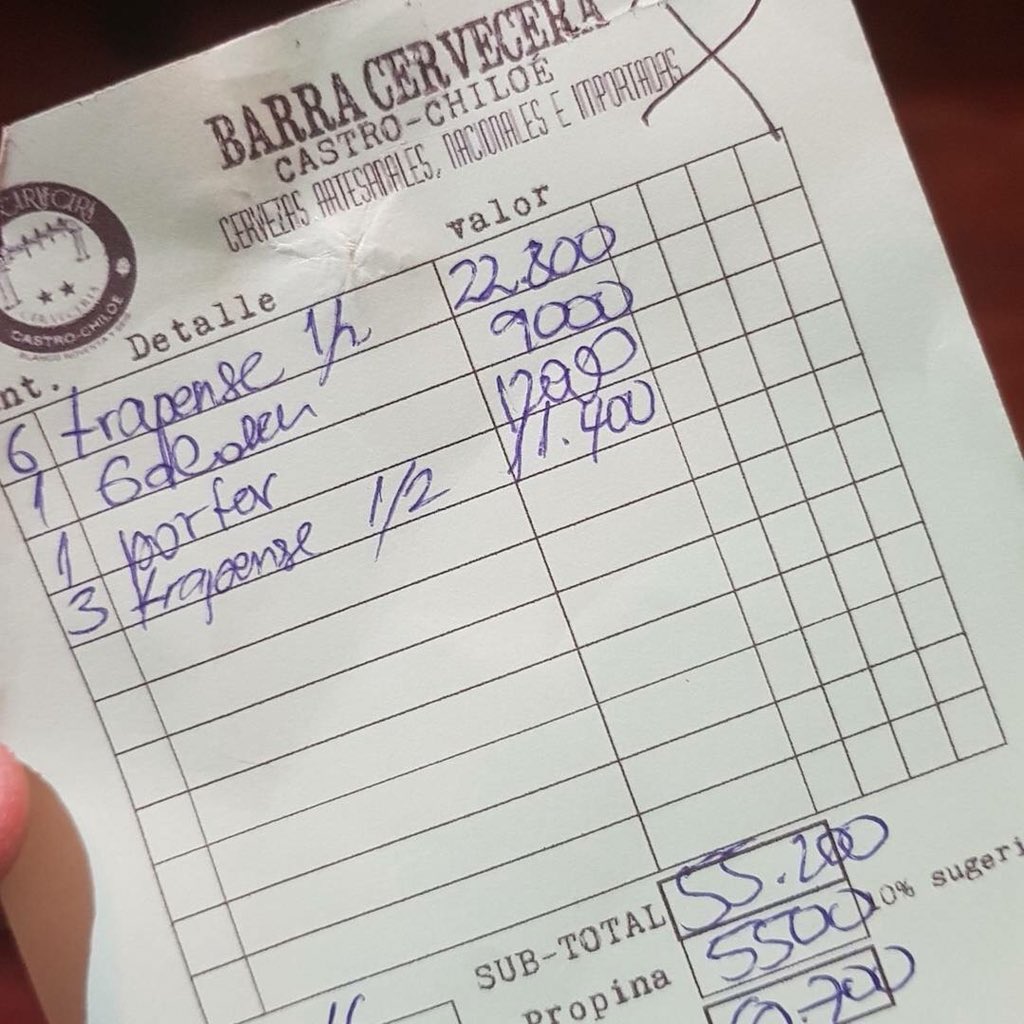 BARRA CERVECERA
CASTRO-CHILOÉ
CERVEZAS ARTESANALES, NACIONALES E IMPORTADAS
CERVECERIA
CASTRO-CHILOE
nt. Detalle valor
6 trapense 1/2 22.800
1 9000
1 porter 12000
3 trapense 1/2 11.400
SUB-TOTAL 55.200
Propina 5500 10% sugeri
0.700